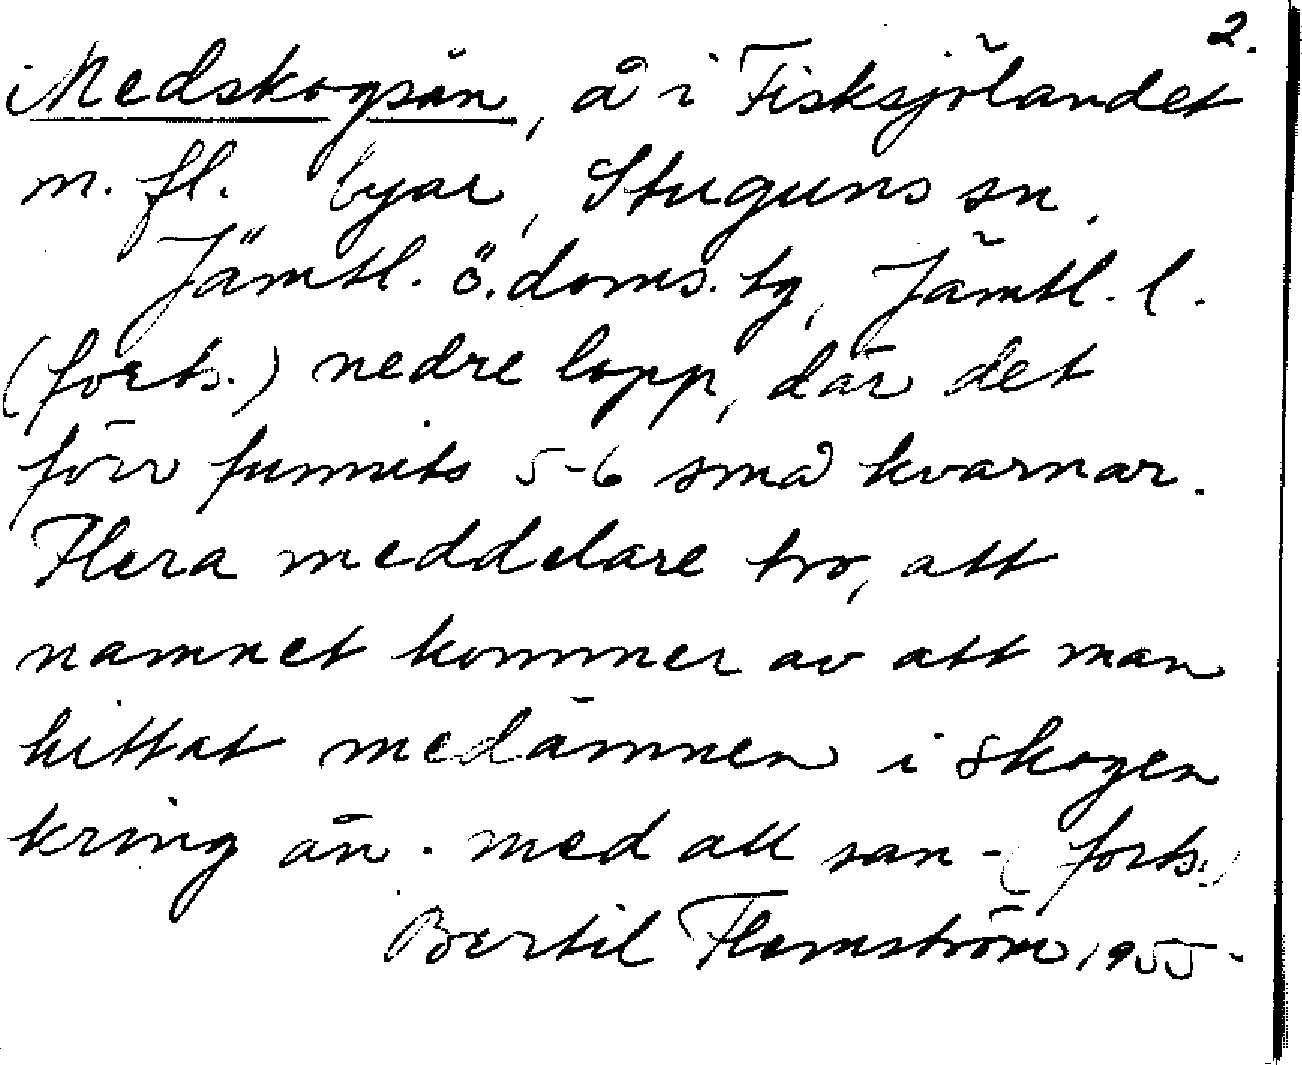 2.
Medskogsån, å i Fisksjölandet
m. fl. byar, Stuguns sn,
Jämtl. ö. doms. tg, Jämtl. l.
(forts.) nedre lopp, där det
förr funnits 5-6 små kvarnar.
Flera meddelare tro, att
namnet kommer av att man
hittat medämnen i skogen
kring ån. med all san- (forts.)
Bertil Flemström 1955.